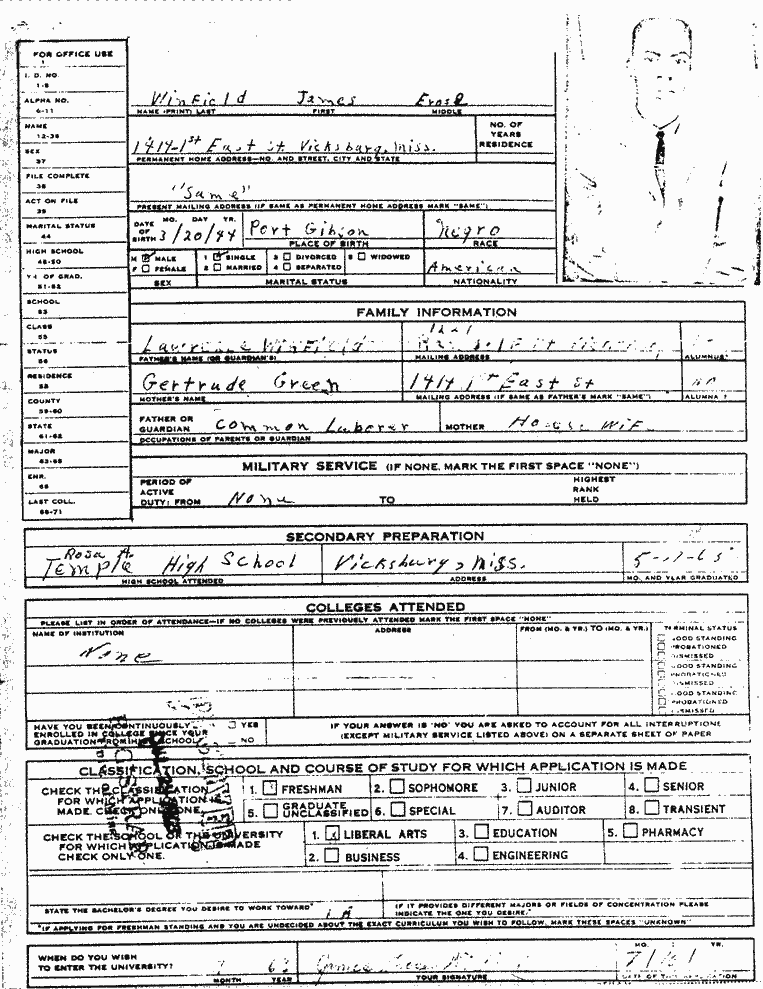 FOR OFFICE USE
1
I. D. NO.
1-5
ALPHA NO.
6-11
NAME
12-36
SEX
37
FILE COMPLETE
38
ACT ON FILE
39
MARITAL STATUS
44
HIGH SCHOOL
45-50
YR OF GRAD.
51-52
SCHOOL
53
CLASS
55
STATUS
56
RESIDENCE
58
COUNTY
59-60
STATE
61-62
MAJOR
63-65
ENR.
66
LAST COLL.
66-71
Winfield James
NAME (PRINT) LAST FIRST MIDDLE
1414-1st East St Vicksburg, Miss.
PERMANENT HOME ADDRESS—NO. AND STREET, CITY AND STATE
NO. OF YEARS RESIDENCE
"Same"
PRESENT MAILING ADDRESS (IF SAME AS PERMANENT HOME ADDRESS MARK "SAME")
DATE OF BIRTH MO. DAY YR. 3/20/44
Port Gibson
PLACE OF BIRTH
Negro
RACE
M MALE
F FEMALE
SEX
1 SINGLE 3 DIVORCED 5 WIDOWED
2 MARRIED 4 SEPARATED
MARITAL STATUS
American
NATIONALITY
FAMILY INFORMATION
Lawrence Winfield
FATHER'S NAME (OR GUARDIAN'S) MAILING ADDRESS ALUMNUS?
Gertrude Green 1414 1st East St no
MOTHER'S NAME MAILING ADDRESS (IF SAME AS FATHER'S MARK "SAME") ALUMNA ?
FATHER OR GUARDIAN Common Laborer MOTHER House Wif
OCCUPATIONS OF PARENTS OR GUARDIAN
MILITARY SERVICE (IF NONE, MARK THE FIRST SPACE "NONE")
PERIOD OF ACTIVE DUTY: FROM None TO HIGHEST RANK HELD
SECONDARY PREPARATION
Rosa A.
Temple High School Vicksburg, Miss.
HIGH SCHOOL ATTENDED ADDRESS MO. AND YEAR GRADUATED
COLLEGES ATTENDED
PLEASE LIST IN ORDER OF ATTENDANCE—IF NO COLLEGES WERE PREVIOUSLY ATTENDED MARK THE FIRST SPACE "NONE"
NAME OF INSTITUTION ADDRESS FROM (MO. & YR.) TO (MO. & YR.) TERMINAL STATUS
None
GOOD STANDING
PROBATIONED
DISMISSED
GOOD STANDING
PROBATIONED
DISMISSED
GOOD STANDING
PROBATIONED
DISMISSED
HAVE YOU BEEN CONTINUOUSLY ENROLLED IN COLLEGE SINCE YOUR GRADUATION FROM HIGH SCHOOL
YES
NO
IF YOUR ANSWER IS 'NO' YOU ARE ASKED TO ACCOUNT FOR ALL INTERRUPTIONS
(EXCEPT MILITARY SERVICE LISTED ABOVE) ON A SEPARATE SHEET OF PAPER
CLASSIFICATION, SCHOOL AND COURSE OF STUDY FOR WHICH APPLICATION IS MADE
CHECK THE CLASSIFICATION FOR WHICH APPLICATION IS MADE. CHECK ONLY ONE.
1. FRESHMAN 2. SOPHOMORE 3. JUNIOR 4. SENIOR
5. GRADUATE UNCLASSIFIED 6. SPECIAL 7. AUDITOR 8. TRANSIENT
CHECK THE SCHOOL OF THE UNIVERSITY FOR WHICH APPLICATION IS MADE CHECK ONLY ONE.
1. LIBERAL ARTS 3. EDUCATION 5. PHARMACY
2. BUSINESS 4. ENGINEERING
STATE THE BACHELOR'S DEGREE YOU DESIRE TO WORK TOWARD*
IF IT PROVIDES DIFFERENT MAJORS OR FIELDS OF CONCENTRATION PLEASE INDICATE THE ONE YOU DESIRE.*
*IF APPLYING FOR FRESHMAN STANDING AND YOU ARE UNDECIDED ABOUT THE EXACT CURRICULUM YOU WISH TO FOLLOW, MARK THESE SPACES "UNKNOWN"
WHEN DO YOU WISH TO ENTER THE UNIVERSITY?
MONTH YEAR YOUR SIGNATURE MO. YR.
DATE OF THIS APPLICATION